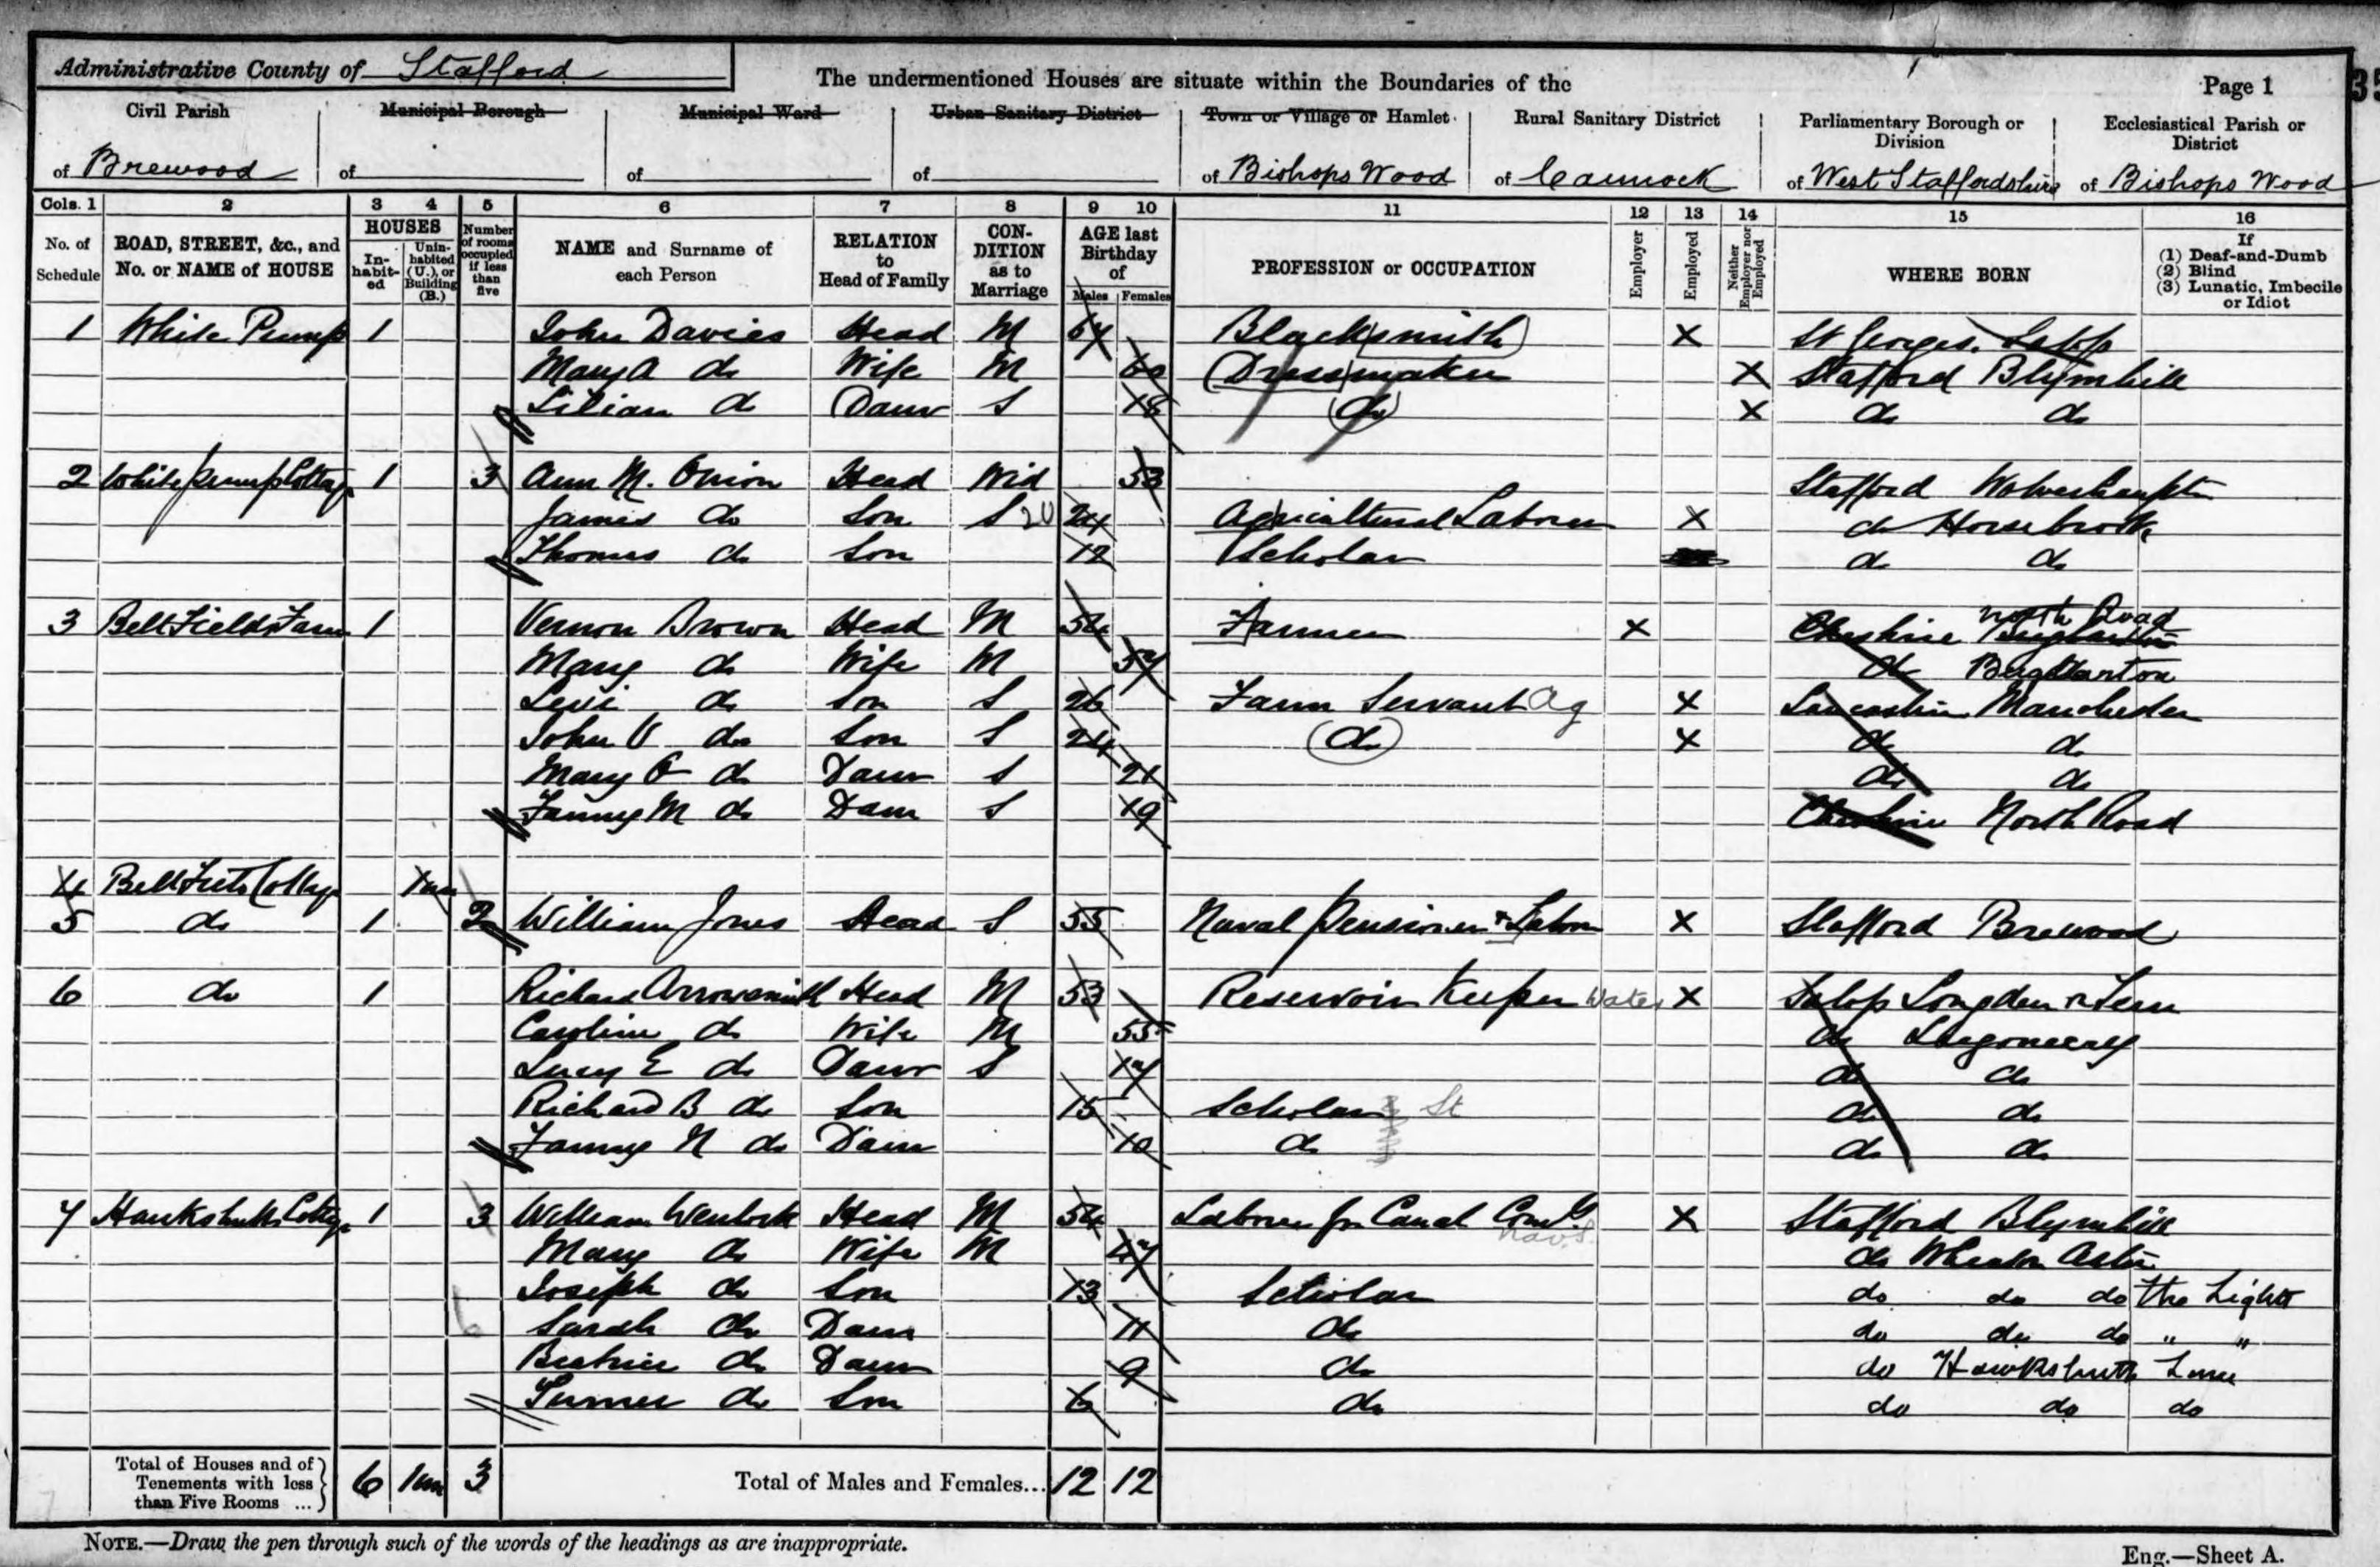 Administrative County of Stafford
The undermentioned Houses are situate within the Boundaries of the
Page 1
35
Civil Parish Municipal Borough Municipal Ward Urban Sanitary District Town or Village or Hamlet Rural Sanitary District Parliamentary Borough or Division Ecclesiastical Parish or District
of Brewood of of of of Bishops Wood of Cannock of West Staffordshire of Bishops Wood
Cols. 1 2 3 4 5 6 7 8 9 10 11 12 13 14 15 16
No. of Schedule
ROAD, STREET, &c., and No. or NAME of HOUSE
HOUSES
In-habit-ed
Unin-habited (U.), or Building (B.)
Number of rooms occupied if less than five
NAME and Surname of each Person
RELATION to Head of Family
CON-DITION as to Marriage
AGE last Birthday of
Males Females
PROFESSION or OCCUPATION
Employer
Employed
Neither Employer nor Employed
WHERE BORN
If
(1) Deaf-and-Dumb
(2) Blind
(3) Lunatic, Imbecile or Idiot
1 White Pump 1 John Davies Head M 64 Blacksmith X St Georges. Salop
Mary A do Wife M 60 Dressmaker X Stafford Blymhill
Lilian do Daur S 18 do X do do
2 White Pump Cottage 1 3 Ann M. Onion Head Wid 53 Stafford Wolverhampton
James do Son S 20 24 Agricultural Laborer X do Horsebrook
Thomas do Son 12 Scholar do do
3 Bell Fields Farm 1 Vernon Brown Head M 54 Farmer X Cheshire North Road
Mary do Wife M 57 do
Levi do Son S 26 Farm Servant Ag X Lancashire Manchester
John V do Son S 24 do X do do
Mary do Daur S 21 do do
Fanny M do Daur S 19 Cheshire North Road
4 Bell Cottage 1 un
5 do 1 2 William Jones Head S 55 Naval Pensioner & Labor X Stafford Brewood
6 do 1 Richard Arrowsmith Head M 53 Reservoir Keeper Water X Salop Longden Tern
Caroline do Wife M 55 do
Lucy E do Daur S 17 do do
Richard B do Son 15 Scholar St do do
Fanny N do Daur 10 do do do
7 Cottage 1 3 William Wenlock Head M 54 Laborer for Canal Comy Navs. X Stafford Blymhill
Mary do Wife M 47 do Wheaton Aston
Joseph do Son 13 Scholar do do do the Light
Sarah do Daur 11 do do do do " "
Beatrice do Daur 9 do do Hawkshutts Lane
Turner do Son 6 do do do do
Total of Houses and of Tenements with less than Five Rooms ... 6 1un 3 Total of Males and Females... 12 12
NOTE.—Draw the pen through such of the words of the headings as are inappropriate.
Eng.—Sheet A.